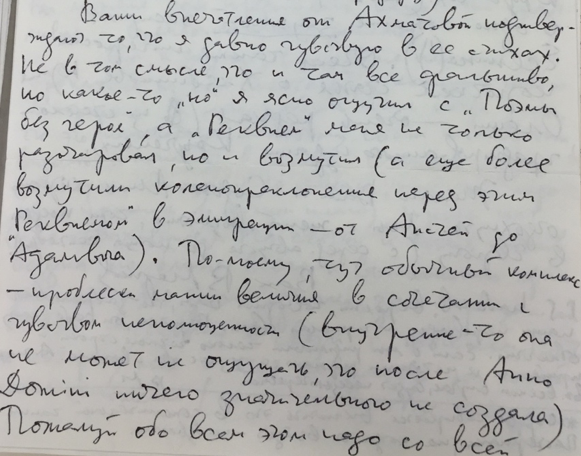 Ваши впечатления от Ахматовой подтвер-
ждают то, что я давно чувствую в ее стихах.
Не в том смысле, что и там все фальшиво,
но какое-то „но" я ясно ощутил с „Поэмы
без героя", а „Реквием" меня не только
разочаровал, но и возмутил (а еще более
возмутили коленопреклонение перед этим
„Реквиемом" в эмиграции – от до
"Адамовича). По-моему, тут обычный комплекс
– проблески мании величия в сочетании с
чувством неполноценности (внутренне-то она
не может не ощущать, что после Anno
Domini ничего значительного не создала)
Пожалуй обо всем этом надо со всей